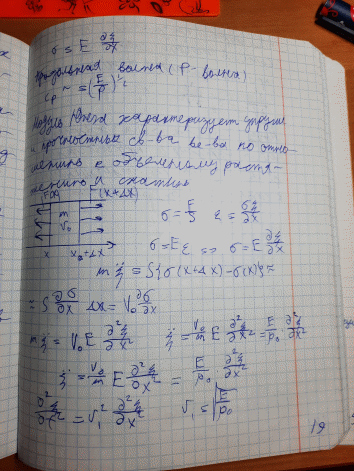 σ = E ∂ξ/∂x
Продольная волна (P-волна)
c_p ~ = (E/ρ)^½
Модуль Юнга характеризует упругие
и прочностные св-ва ве-ва по отно-
шению к объемному растя-
жению и сжатию
F(x) F(x+Δx)
m
V₀
x x₀+Δx
σ = F/S ε = ∂ξ/∂x
σ = Eε => σ = E ∂ξ/∂x
m ξ̈ = S{σ(x+Δx) - σ(x)} =
= S ∂σ/∂x Δx = V₀ ∂σ/∂x
m ξ̈ = V₀ E ∂²ξ/∂x² ξ̈ = V₀/m E ∂²ξ/∂x² = E/ρ₀ · ∂²ξ/∂x²
ξ̈ = V₀/m E ∂²ξ/∂x² = E/ρ₀ ∂²ξ/∂x²
∂²ξ/∂t² = v₁² ∂²ξ/∂x² v₁ = √(E/ρ₀)
19